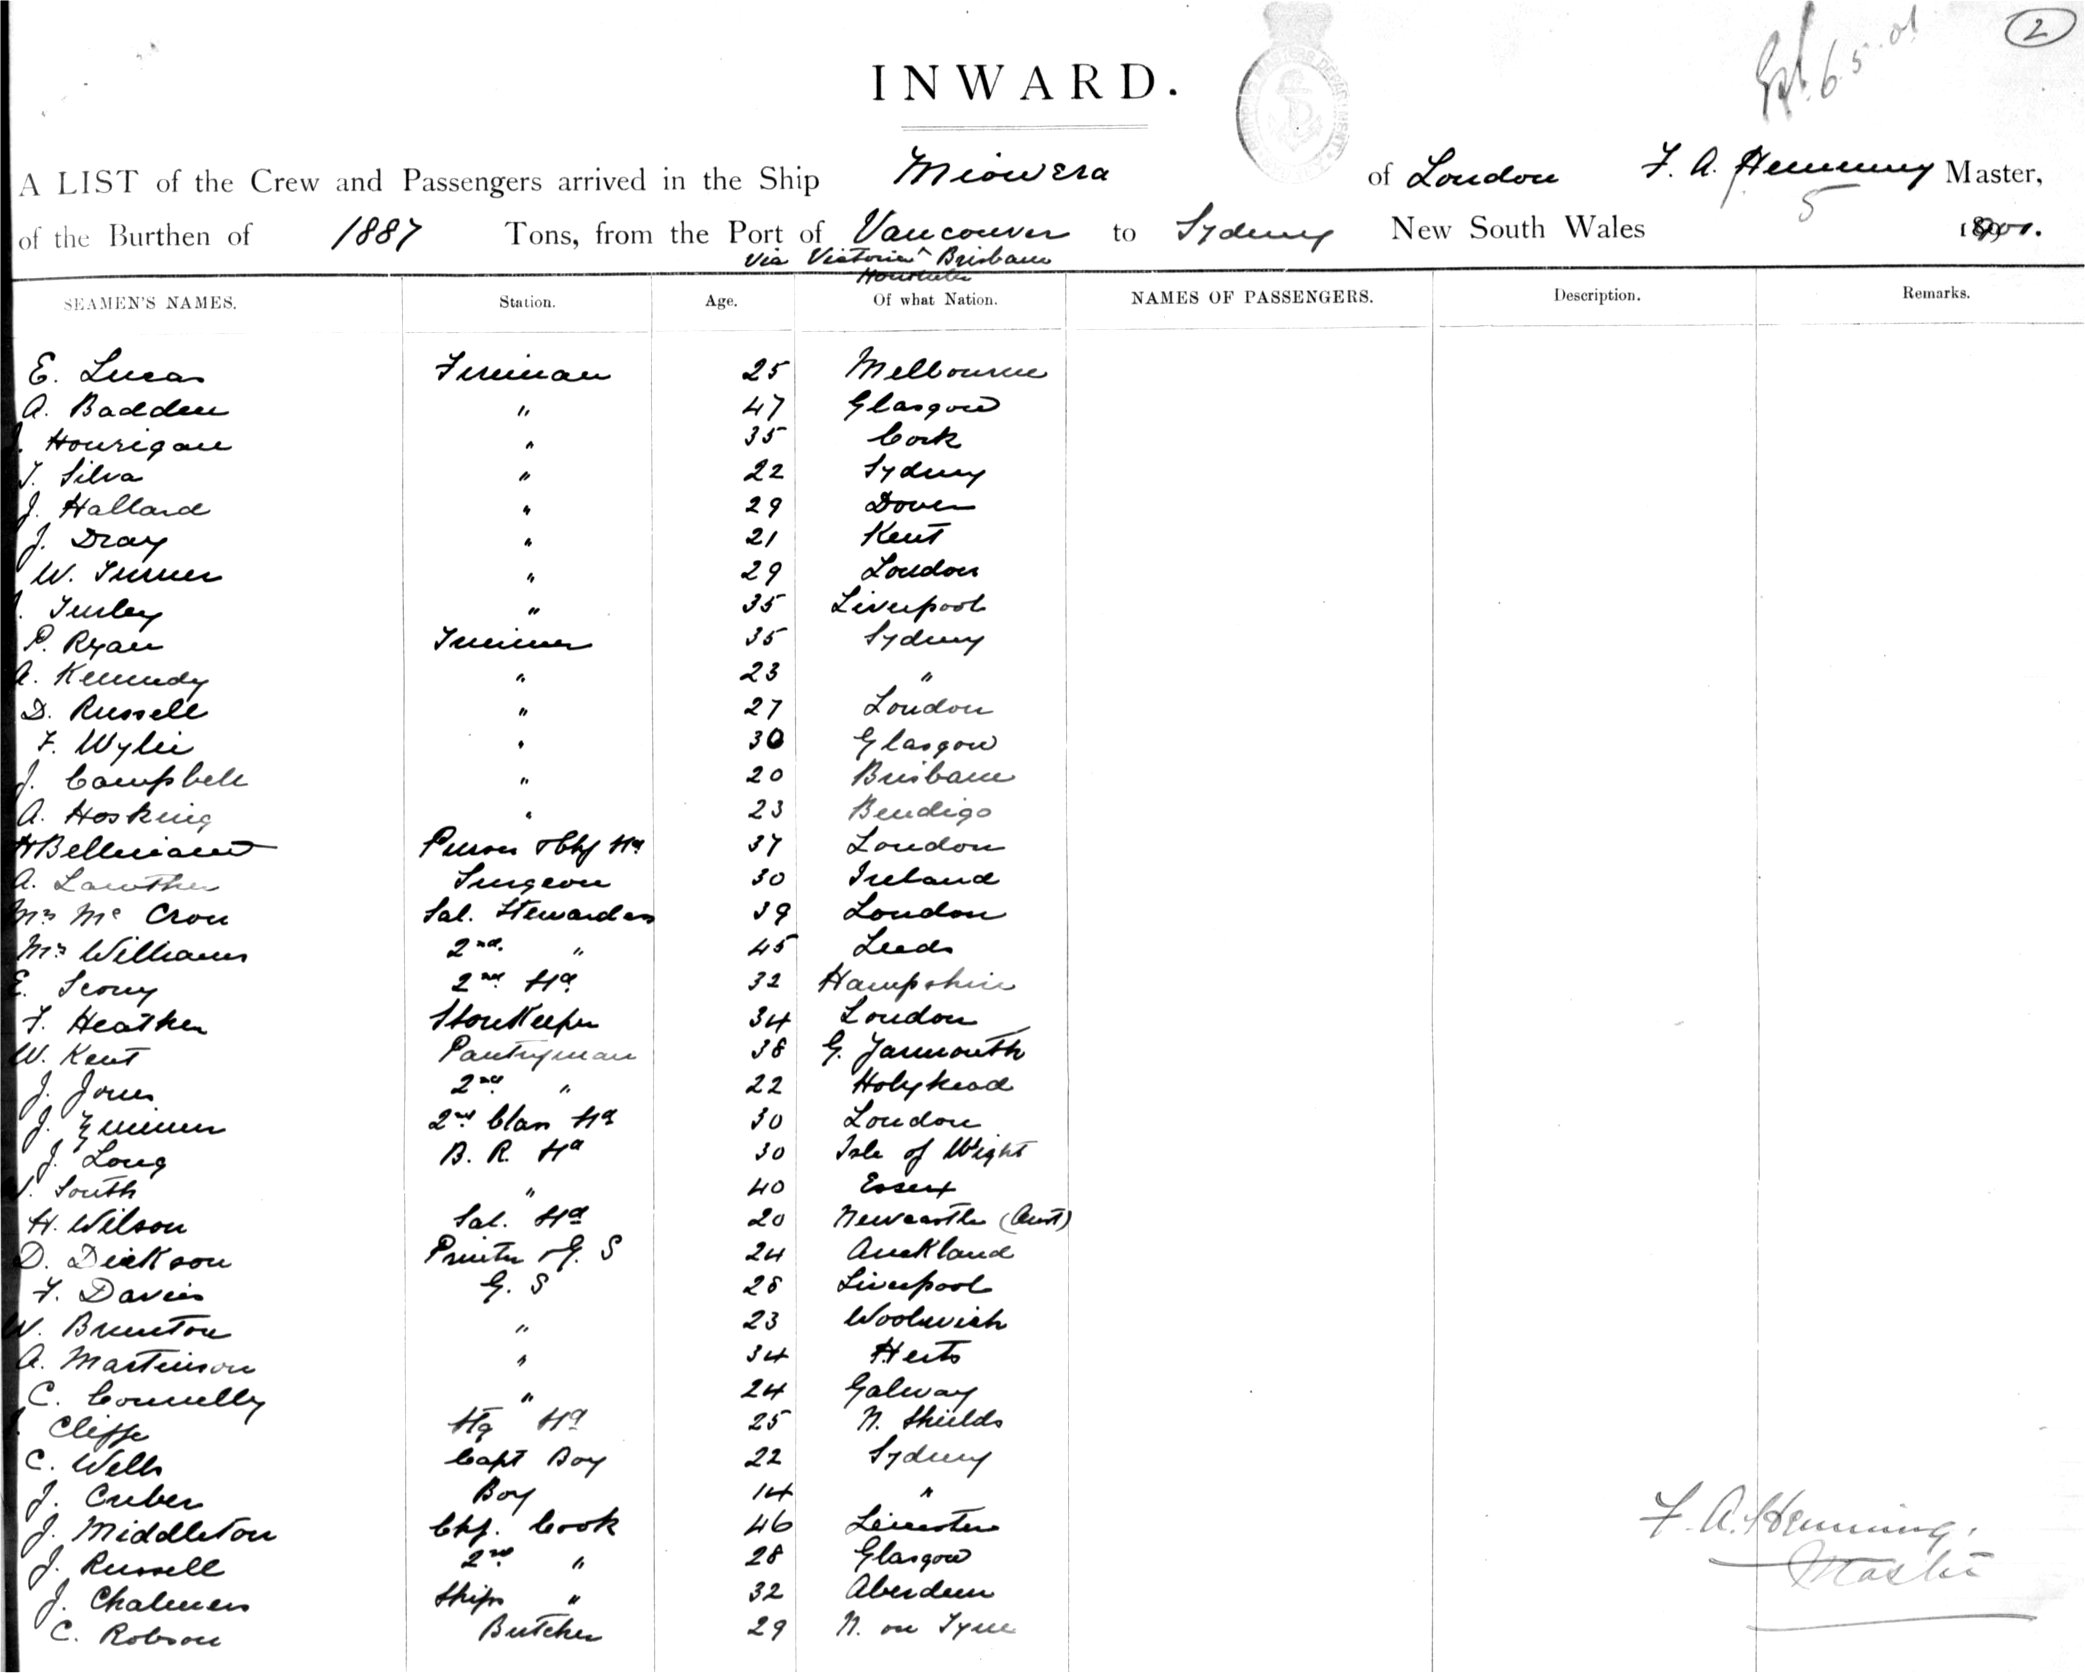 2
6.5.01
INWARD.
A LIST of the Crew and Passengers arrived in the Ship Miowera of London F. A. Hemming Master,
5
of the Burthen of 1887 Tons, from the Port of Vancouver to Sydney New South Wales 1901.
Via Victoria ^ Brisbane
Honolulu
SEAMEN'S NAMES. Station. Age. Of what Nation. NAMES OF PASSENGERS. Description. Remarks.
E. Lucas Fireman 25 Melbourne
A. Badden " 47 Glasgow
Hourigan " 35 Cork
T. Silva " 22 Sydney
J. Hallard " 29 Dover
J. Dray " 21 Kent
W. Turner " 29 London
Turley " 35 Liverpool
P. Ryan Trimmer 35 Sydney
A. Kennedy " 23 "
D. Russell " 27 London
F. Wylie " 30 Glasgow
J. Campbell " 20 Brisbane
A. Hosking " 23 Bendigo
H Bellmaine Purser & Chf Std 37 London
A. Lawther Surgeon 30 Ireland
Mrs Mc Cron Sal. Stewardess 39 London
Mrs Williams 2nd. " 45 Leeds
E. 2nd Std 32 Hampshire
F. Heather StoreKeeper 34 London
W. Kent Pantryman 38 G. Yarmouth
J. Jones 2nd " 22 Holyhead
J. 2nd Class Std 30 London
J. Long B. R. Std 30 Isle of Wight
South " 40 Essex
H. Wilson Sal. Std 20 Newcastle (Aust)
D. Dickson Printer & G. S 24 Auckland
F. Davies G. S 28 Liverpool
W. Brunton " 23 Woolwich
A. Martinson " 34 Herts
C. Connelly " 24 Galway
Cliffe Stg Std 25 N. Shields
C. Wells Capt Boy 22 Sydney
J. Cuber Boy 14 "
J. Middleton Chf. Cook 46 Leicester
J. Russell 2nd " 28 Glasgow
J. Chalmers Ships " 32 Aberdeen
C. Robson Butcher 29 N. on Tyne
F. A. Hemming.
Master